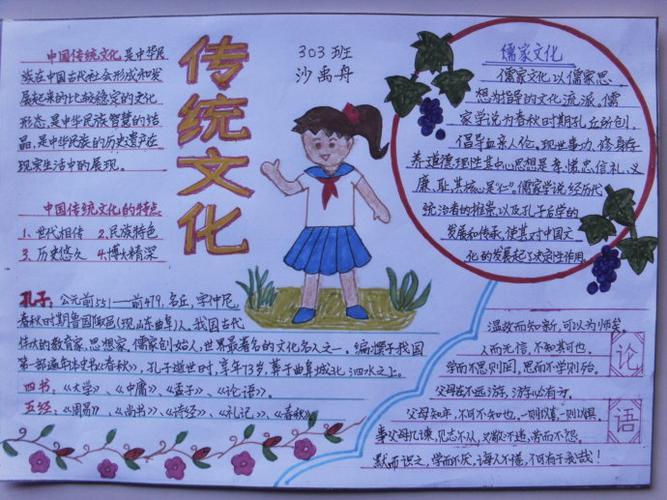 中国传统文化是中华民
族在中国古代社会形成和发
展起来的比较稳定的文化
形态,是中华民族智慧的结
晶,是中华民族的历史遗产在
现实生活中的展现。
中国传统文化的特点
1、世代相传 2、民族特色
3、历史悠久 4、博大精深
传统文化
303班
沙禹舟
儒家文化
儒家文化以儒家思
想为指导的文化流派。儒
家学说为春秋时期孔丘所创,
倡导血亲人伦、现世事功、修身存
养、道德理性其中心思想是孝、悌、忠、信、礼、义、
廉、耻,其核心是"仁"。儒家学说经历代
统治者的推崇,以及孔子后学的
发展和传承,使其对中国文
化的发展起了决定性作用。
孔子:公元前551—前479,名丘,字仲尼,
春秋时期鲁国陬邑(现山东曲阜)人。我国古代
伟大的教育家、思想家,儒家创始人,世界最著名的文化名人之一。编撰了我国
第一部编年体史书《春秋》。孔子逝世时,享年73岁,葬于曲阜城北泗水之上。
四书:《大学》、《中庸》、《孟子》、《论语》。
五经:《周易》、《尚书》、《诗经》、《礼记》、《春秋》
论语
温故而知新,可以为师矣。
人而无信,不知其可也。
学而不思则罔,思而不学则殆。
父母在不远游,游必有方。
父母之年,不可不知也,一则以喜,一则以惧。
事父母几谏,见志不从,又敬不违,劳而不怨。
默而识之,学而不厌,诲人不倦,何有于我哉!